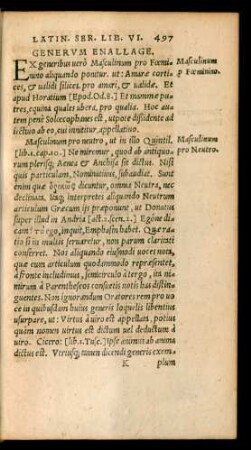 LATIN. SER. LIB. VI. 497
GENERVM ENALLAGE.
EX generibus verò Masculinum pro Fœmi-
nino aliquando ponitur. ut: Amaræ corti-
ces, & ualidi silices. pro amari, & ualidæ. Et
apud Horatium [Epod. Od. 8.] Et mammæ pu-
tres, equina quales ubera. pro qualia. Hoc au-
tem penè Solœcophanes est, utpote dissidente ad-
iectiuo ab eo, cui innititur, appellatiuo.
Masculinum
p Fœminino.
Masculinum pro neutro, ut in illo Quintil.
[lib. 1. cap. 10.] Ne miremur, quod ab antiquo-
rum plerisq; Aenea & Anchisa sit dictus. Nisi
quis particulam, Nominatiui, subaudiat. Sunt
enim quæ dicuntur, omnia Neutra, nec
declinata, sicq; interpretes aliquando Neutrum
articulum Græcum ijs præponunt, ut Donatus
super illud in Andria [act. 1. scen. 1.] Egóne di-
cam? inquit, Emphasin habet. Quæ ra-
tio si in multis seruaretur, non parum claritati
conferret. Nos aliquando eiusmodi uoces notis,
quæ eum articulum quodammodo repræsentet,
à fronte includimus, semicirculo à tergo, ita ni-
mirum à Parentheseos consuetis notis has distin-
guentes. Non ignorandum Oratores rem pro uo
ce in quibusdam huius generis loquelis libentius
usurpare, ut: Virtus à uiro est appellata. potius
quàm nomen uirtus est dictum uel deductum à
uiro. Cicero: [lib. 1. Tusc.] Ipse animus ab anima
dictus est. Vtriusq; nunc dicendi generis exem-
Masculinum
pro Neutro.
K plum